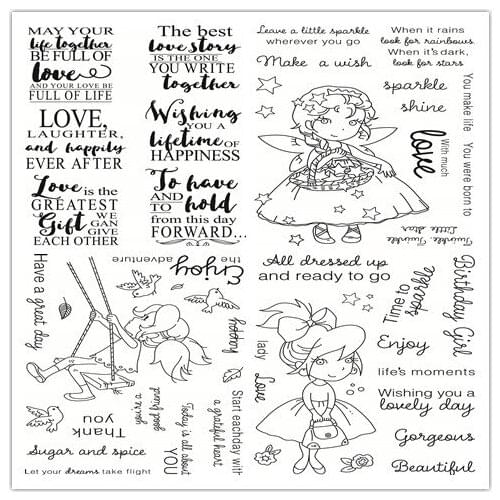 MAY YOUR
life together
BE FULL OF
love
AND YOUR LOVE BE
FULL OF LIFE
The best
love story
IS THE ONE
YOU WRITE
together
LOVE,
LAUGHTER,
and happily
EVER AFTER
Wishing
YOU A
lifetime OF
HAPPINESS
Love is the
GREATEST
Gift WE
CAN
GIVE
EACH OTHER
To have
AND
TO hold
from this day
FORWARD...
Leave a little sparkle
wherever you go
Make a wish
When it rains
look for rainbows
When it's dark,
look for stars
sparkle
shine
You make life
love
With much
You were born to
Twinkle Twinkle
Little Star
Have a great day
Enjoy
the adventure
hooray
Start eachday with
a grateful heart
you're a
good friend
Today is all about
YOU
Thank
you
Sugar and spice
Let your dreams take flight
All dressed up
and ready to go
Time to
sparkle
Birthday Girl
Enjoy
life's moments
lady
Love
Wishing you a
lovely day
Gorgeous
Beautiful